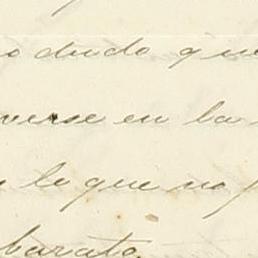 o dudo que
verse en la
lo que no p
barato.